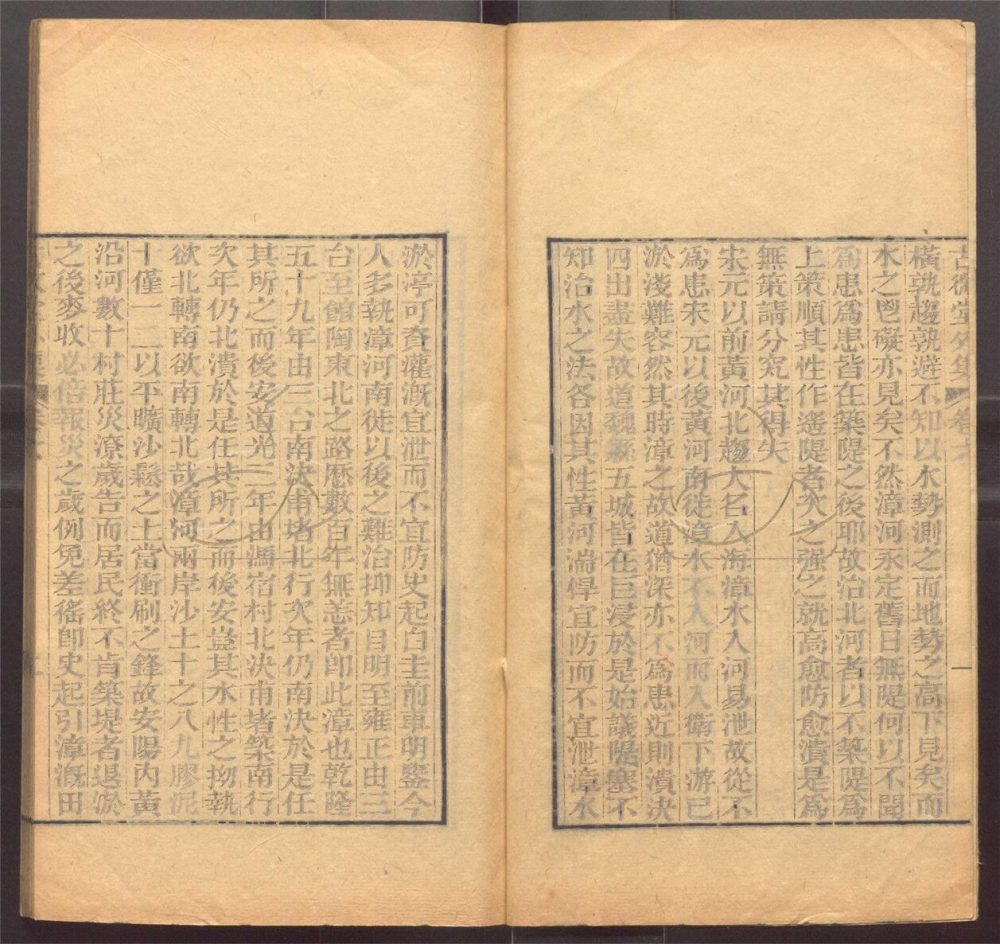 古微堂外集 卷六
橫孰趨孰避不知以水勢測之而地勢之高下見矣而
水之巴礙亦見矣不然漳河永定舊日無隄何以不聞
爲患爲患皆在築隄之後耶故治北河者以不築隄爲
上策順其性作遙隄者次之强之就高愈防愈潰是爲
無策請分究其得失
宋元以前黃河北趨大名入海漳水入河易泄故從不
爲患宋元以後黃河南徙漳水不入河而入衞下游已
淤淺難容然其時漳之故道猶深亦不爲患近則潰決
四出盡失故道魏縣五城皆在巨浸於是始議隄塞不
知治水之法各因其性黃河湍悍宜防而不宜泄漳水
淤渟可資灌漑宜泄而不宜防史起白圭前車明鑒今
人多執漳河南徙以後之難治抑知自明至雍正由三
台至館陶東北之路歷數百年無恙者卽此漳也乾隆
五十九年由三台南決甫堵北行次年仍南決於是任
其所之而後安道光三年由馮宿村北決甫堵築南行
次年仍北潰於是任其所之而後安豈其水性之拗執
欲北轉南欲南轉北哉漳河兩岸沙土十之八九膠泥
十僅一二以平曠沙鬆之土當衝刷之鋒故安陽內黃
沿河數十村莊災潦歲告而居民終不肯築堤者退淤
之後麥收必倍報災之歲例免差徭卽史起引漳漑田